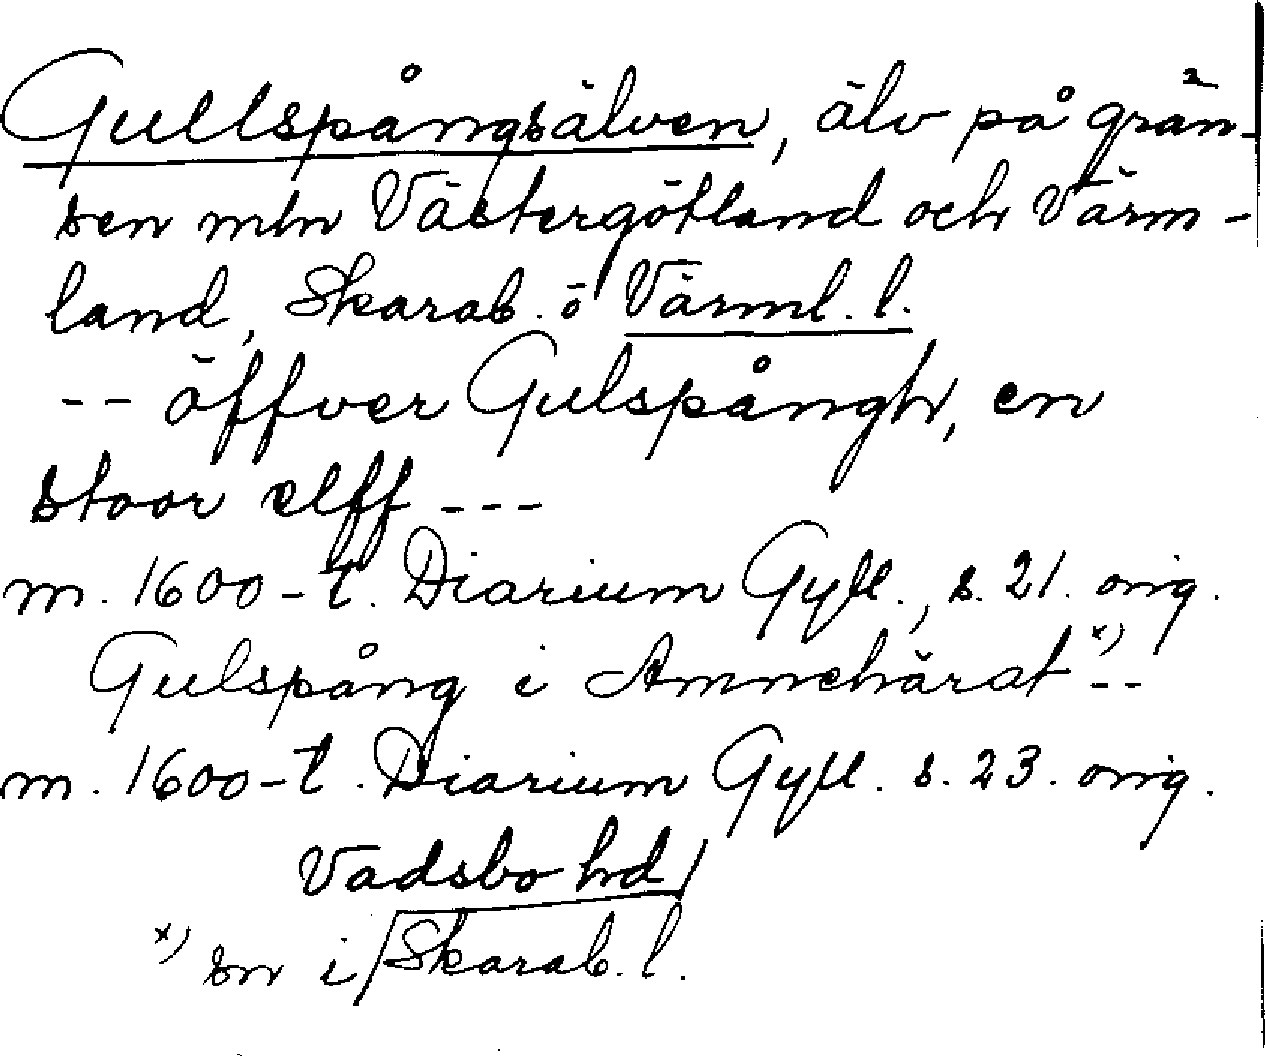 Gullspångsälven, älv på grän-
sen mln Västergötland och Värm-
land, Skarab. ö Värml. l.
-- öffver Gulspångh, en
stoor elff ---
m. 1600-t. Diarium Gyll., s. 21. orig.
Gulspång i Amnehärat x) --
m. 1600-t. Diarium Gyll. s. 23. orig.
Vadsbo hd
x) sn i Skarab. l.